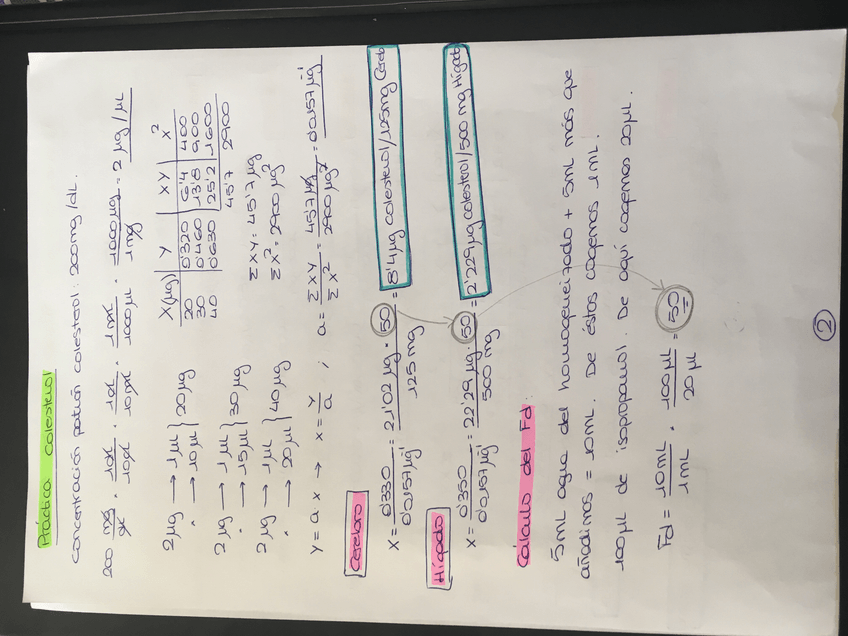 Práctica colesterol
concentración patrón colesterol: 200mg/dL.
200 mg/dL · 1dL/10cL · 1cL/10mL · 1mL/1000µL · 1000µg/1mg = 2 µg/µL
2µg → 1µL } 20µg
" → 10µL
2µg → 1µL } 30µg
" → 15µL
2µg → 1µL } 40µg
" → 20µL
X(µg) | Y | XY | X²
20 | 0'320 | 6'4 | 400
30 | 0'460 | 13'8 | 900
40 | 0'630 | 25'2 | 1600
45'7 2900
Σ XY = 45'7µg
Σ X² = 2900µg²
Y = a x → x = Y/a ; a = Σ XY / Σ X² = 45'7µg / 2900µg² = 0'0157µg⁻¹
Cerebro
x = 0'330 / 0'0157µg⁻¹ = 21'02µg · 50 / 125mg = 8'4µg colesterol/125mg Cerebro
Hígado
x = 0'350 / 0'0157µg⁻¹ = 22'29µg · 50 / 500mg = 2'229µg colesterol/500mg Hígado
Cálculo del Fd:
5mL agua del homogeneizado + 5mL más que
añadimos = 10mL. De éstos cogemos 1mL.
100µL de isopropanol. De aquí cogemos 20µL.
Fd = 10mL/1mL · 100µL/20µL = 50
2